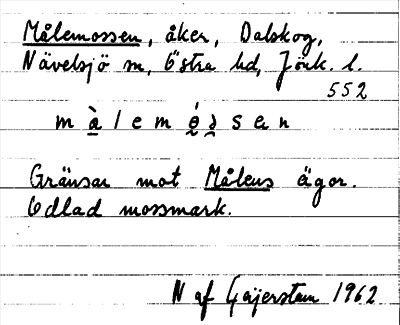 Målemossen, åker, Dalskog,
Nävelsjö sn, Östra hd, Jönk. l.
552
m à l e m ó̰ s̰ s e n
Gränsar mot Målens ägor.
Odlad mossmark.
N af Geijerstam 1962